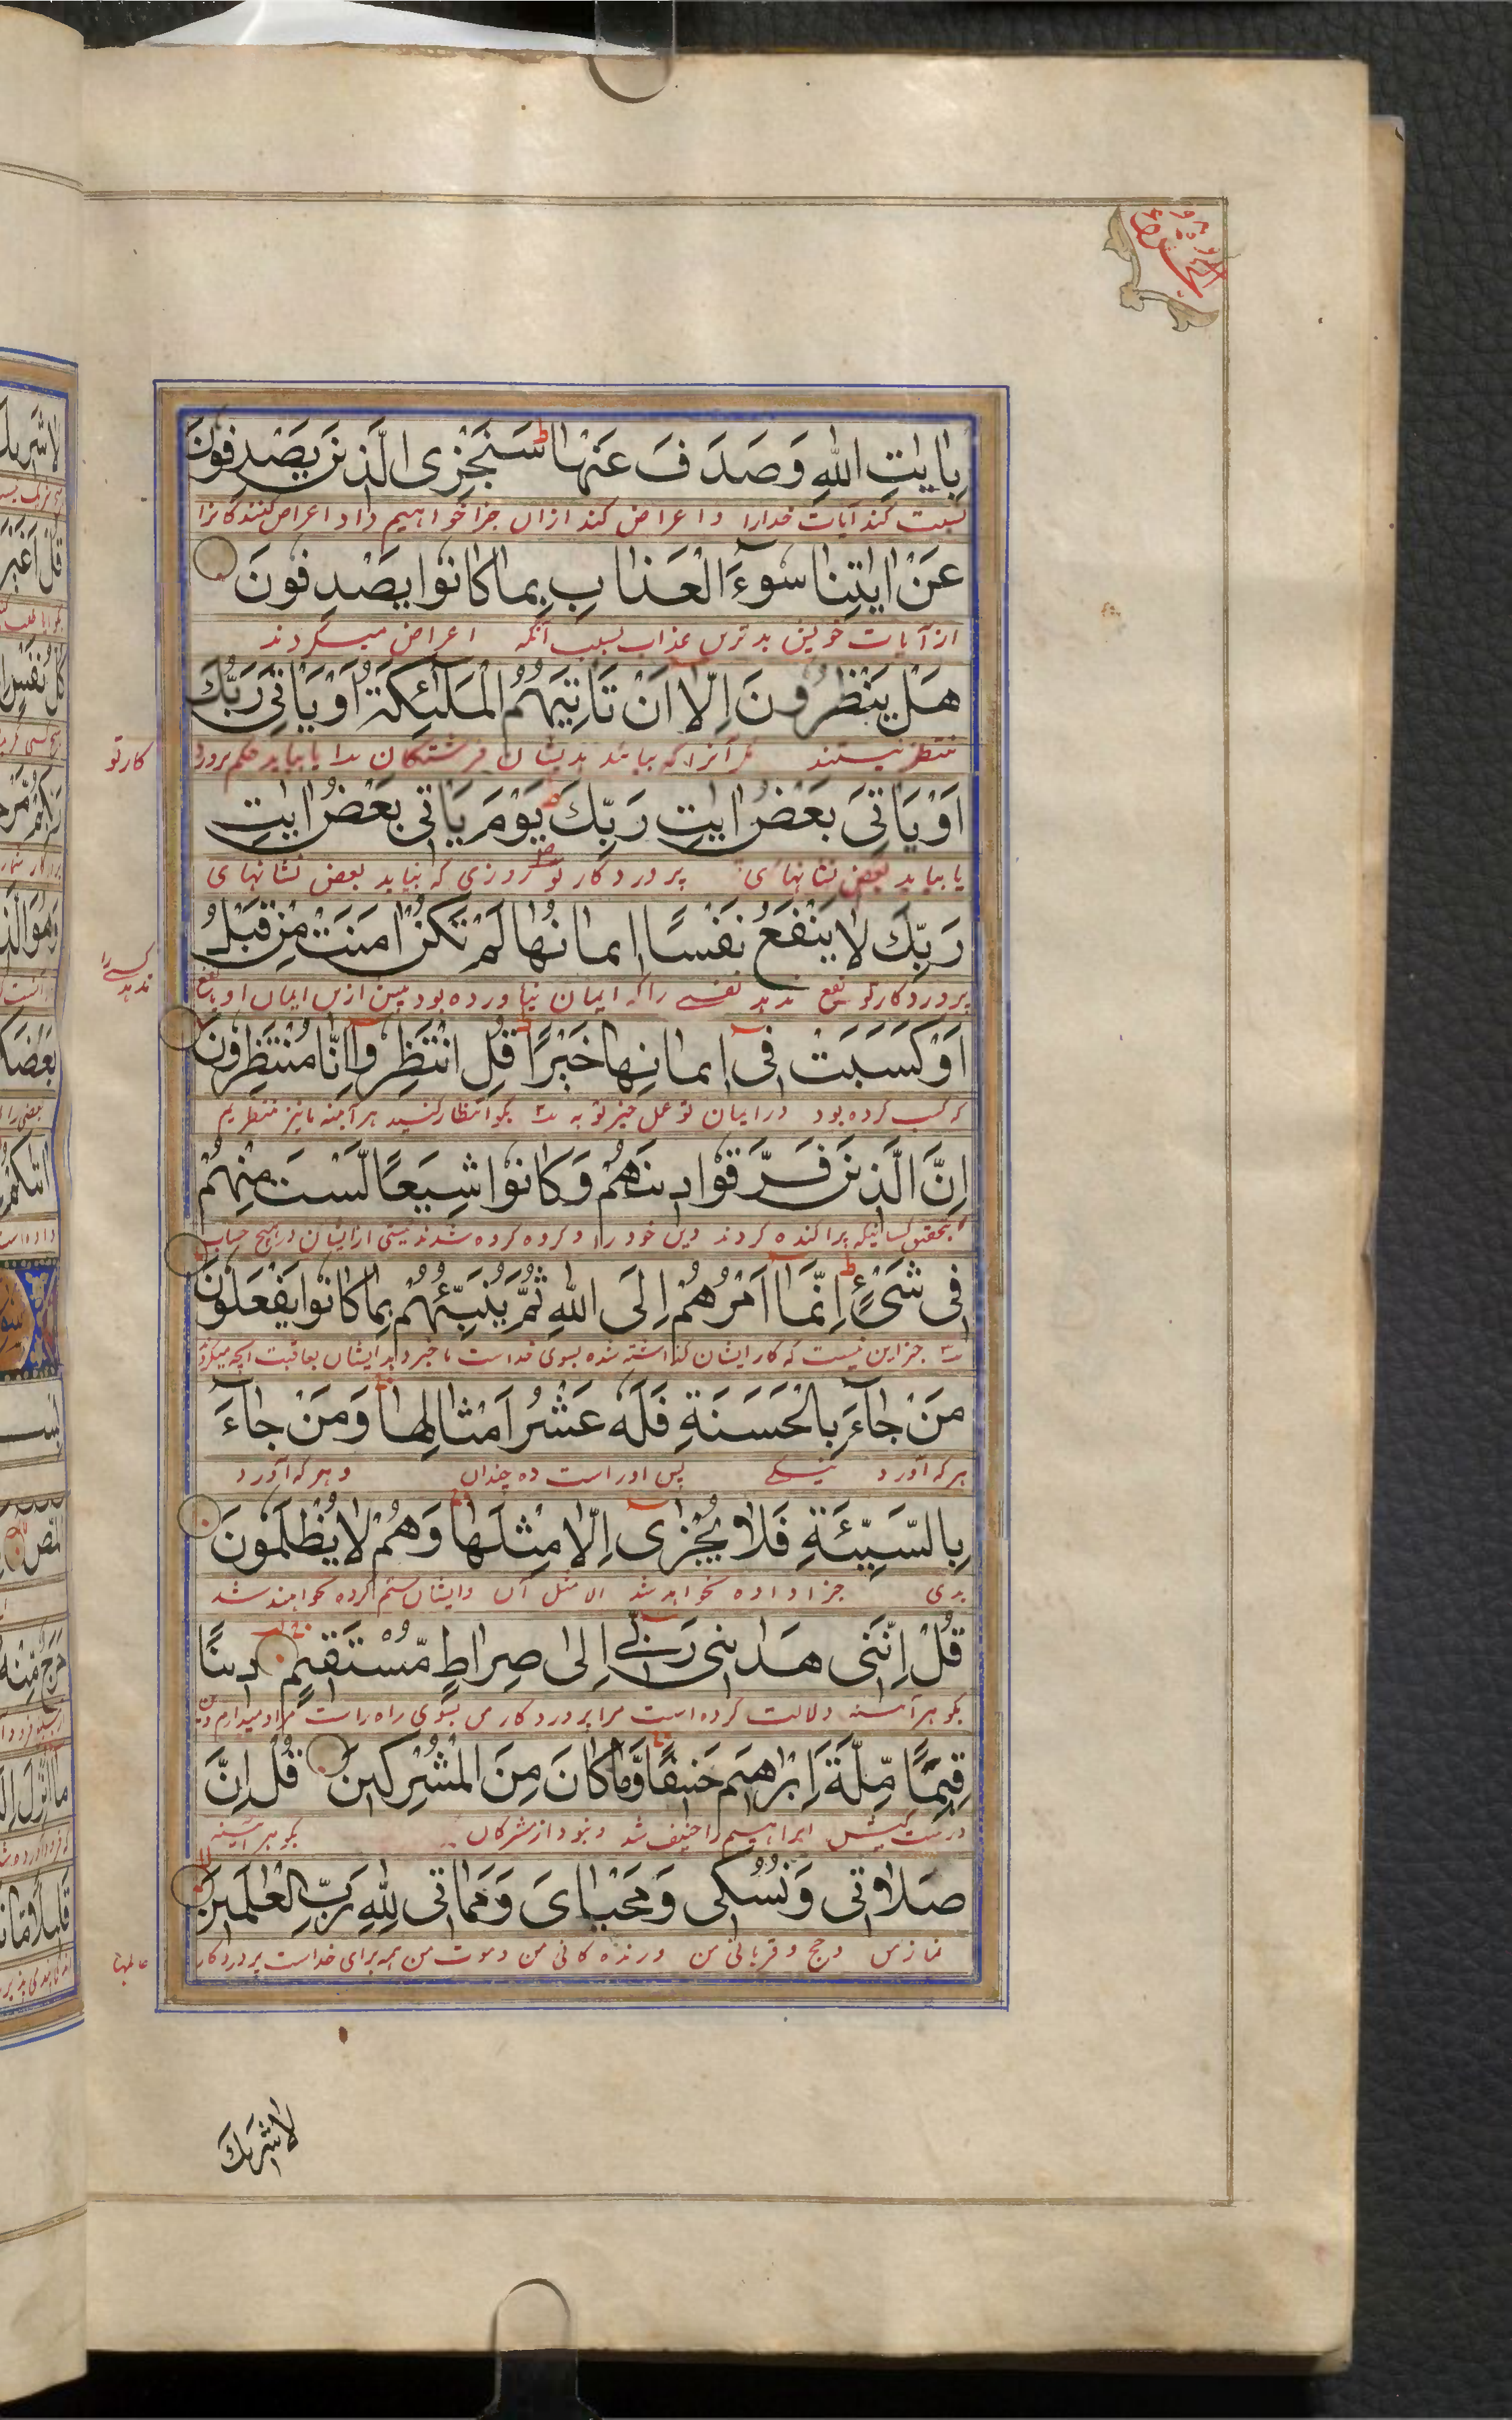 بِاٰيٰتِ اللّٰهِ وَصَدَفَ عَنْهَا سَنَجْزِى الَّذِيْنَ يَصْدِفُوْنَ
كند آيات خدارا و اعراض كند ازان جزا خواهيم داد اعراض كنندكانرا
عَنْ اٰيٰتِنَا سُوْٓءَ الْعَذَابِ بِمَا كَانُوْا يَصْدِفُوْنَ
از آيات خويش بدترين عذاب بسبب آنكه اعراض ميكردند
هَلْ يَنْظُرُوْنَ اِلَّا اَنْ تَاْتِيَهُمُ الْمَلٰئِكَةُ اَوْ يَاْتِىَ رَبُّكَ
منتظر نيستند مكر آنرا كه بيايند بديشان فرشتكان يا بيايد حكم پرورد
كارتو
اَوْ يَاْتِىَ بَعْضُ اٰيٰتِ رَبِّكَ يَوْمَ يَاْتِى بَعْضُ اٰيٰتِ
يا بيايد بعض نشانهاى پروردكار تو روزى كه بيايد بعض نشانهاى
رَبِّكَ لَا يَنْفَعُ نَفْسًا اِيْمَانُهَا لَمْ تَكُنْ اٰمَنَتْ مِنْ قَبْلُ
پروردكار تو نفع ندهد نفسى را كه ايمان نياورده بود پيش ازين ايمان او
اَوْ كَسَبَتْ فِىْ اِيْمَانِهَا خَيْرًا قُلِ انْتَظِرُوْا اِنَّا مُنْتَظِرُوْنَ
كسب كرده بود در ايمان بكو انتظار كنيد هر آينه ما نيز منتظريم
اِنَّ الَّذِيْنَ فَرَّقُوْا دِيْنَهُمْ وَكَانُوْا شِيَعًا لَّسْتَ مِنْهُمْ
بتحقيق كسانيكه پراكنده كردند دين خود را و كروه كروه شدند نيستى از ايشان در هيچ حساب
فِىْ شَىْءٍ اِنَّمَا اَمْرُهُمْ اِلَى اللّٰهِ ثُمَّ يُنَبِّئُهُمْ بِمَا كَانُوْا يَفْعَلُوْنَ
جز اين نيست كه كار ايشان كذاشته شده بسوى خداست خبر دهد ايشان بعاقبت آنچه ميكردند
مَنْ جَآءَ بِالْحَسَنَةِ فَلَهٗ عَشْرُ اَمْثَالِهَا وَمَنْ جَآءَ
هر كه آورد نيكى پس اوراست ده چندان و هر كه آورد
بِالسَّيِّئَةِ فَلَا يُجْزٰى اِلَّا مِثْلَهَا وَهُمْ لَا يُظْلَمُوْنَ
بدى جزا داده نخواهد شد الا مثل آن و ايشان ستم كرده نخواهند شد
قُلْ اِنَّنِىْ هَدٰىنِىْ رَبِّىْ اِلٰى صِرَاطٍ مُّسْتَقِيْمٍ دِيْنًا
بكو هر آئينه دلالت كرده است مرا پروردكار من بسوى راه راست مراد ميدارم دين
قِيَمًا مِّلَّةَ اِبْرٰهِيْمَ حَنِيْفًا وَّمَا كَانَ مِنَ الْمُشْرِكِيْنَ قُلْ اِنَّ
درست كيش ابراهيم حنيف شد و نبود از مشركان بكو هر آئينه
صَلَاتِىْ وَنُسُكِىْ وَمَحْيَاىَ وَمَمَاتِىْ لِلّٰهِ رَبِّ الْعٰلَمِيْنَ
نماز من و حج و قربانى من و زنده كانى من و موت من همه براى خداست پروردكار
عالمها
لا شريك